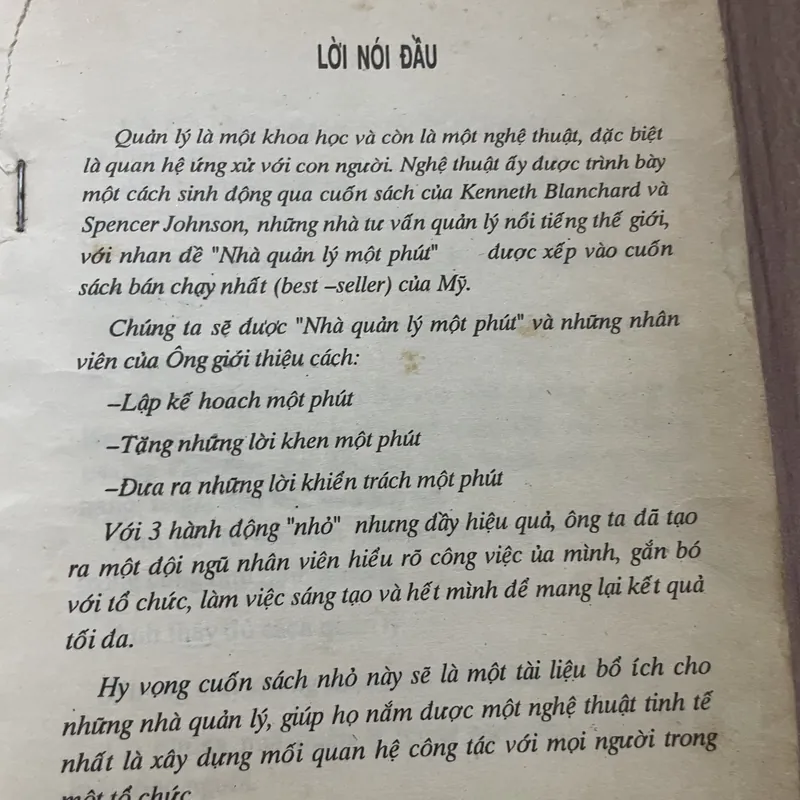 LỜI NÓI ĐẦU
Quản lý là một khoa học và còn là một nghệ thuật, đặc biệt
là quan hệ ứng xử với con người. Nghệ thuật ấy được trình bày
một cách sinh động qua cuốn sách của Kenneth Blanchard và
Spencer Johnson, những nhà tư vấn quản lý nổi tiếng thế giới,
với nhan đề "Nhà quản lý một phút" được xếp vào cuốn
sách bán chạy nhất (best –seller) của Mỹ.
Chúng ta sẽ được "Nhà quản lý một phút" và những nhân
viên của Ông giới thiệu cách:
–Lập kế hoach một phút
–Tặng những lời khen một phút
–Đưa ra những lời khiển trách một phút
Với 3 hành động "nhỏ" nhưng đầy hiệu quả, ông ta đã tạo
ra một đội ngũ nhân viên hiểu rõ công việc ủa mình, gắn bó
với tổ chức, làm việc sáng tạo và hết mình để mang lại kết quả
tối đa.
Hy vọng cuốn sách nhỏ này sẽ là một tài liệu bổ ích cho
những nhà quản lý, giúp họ nắm được một nghệ thuật tinh tế
nhất là xây dựng mối quan hệ công tác với mọi người trong
một tổ chức